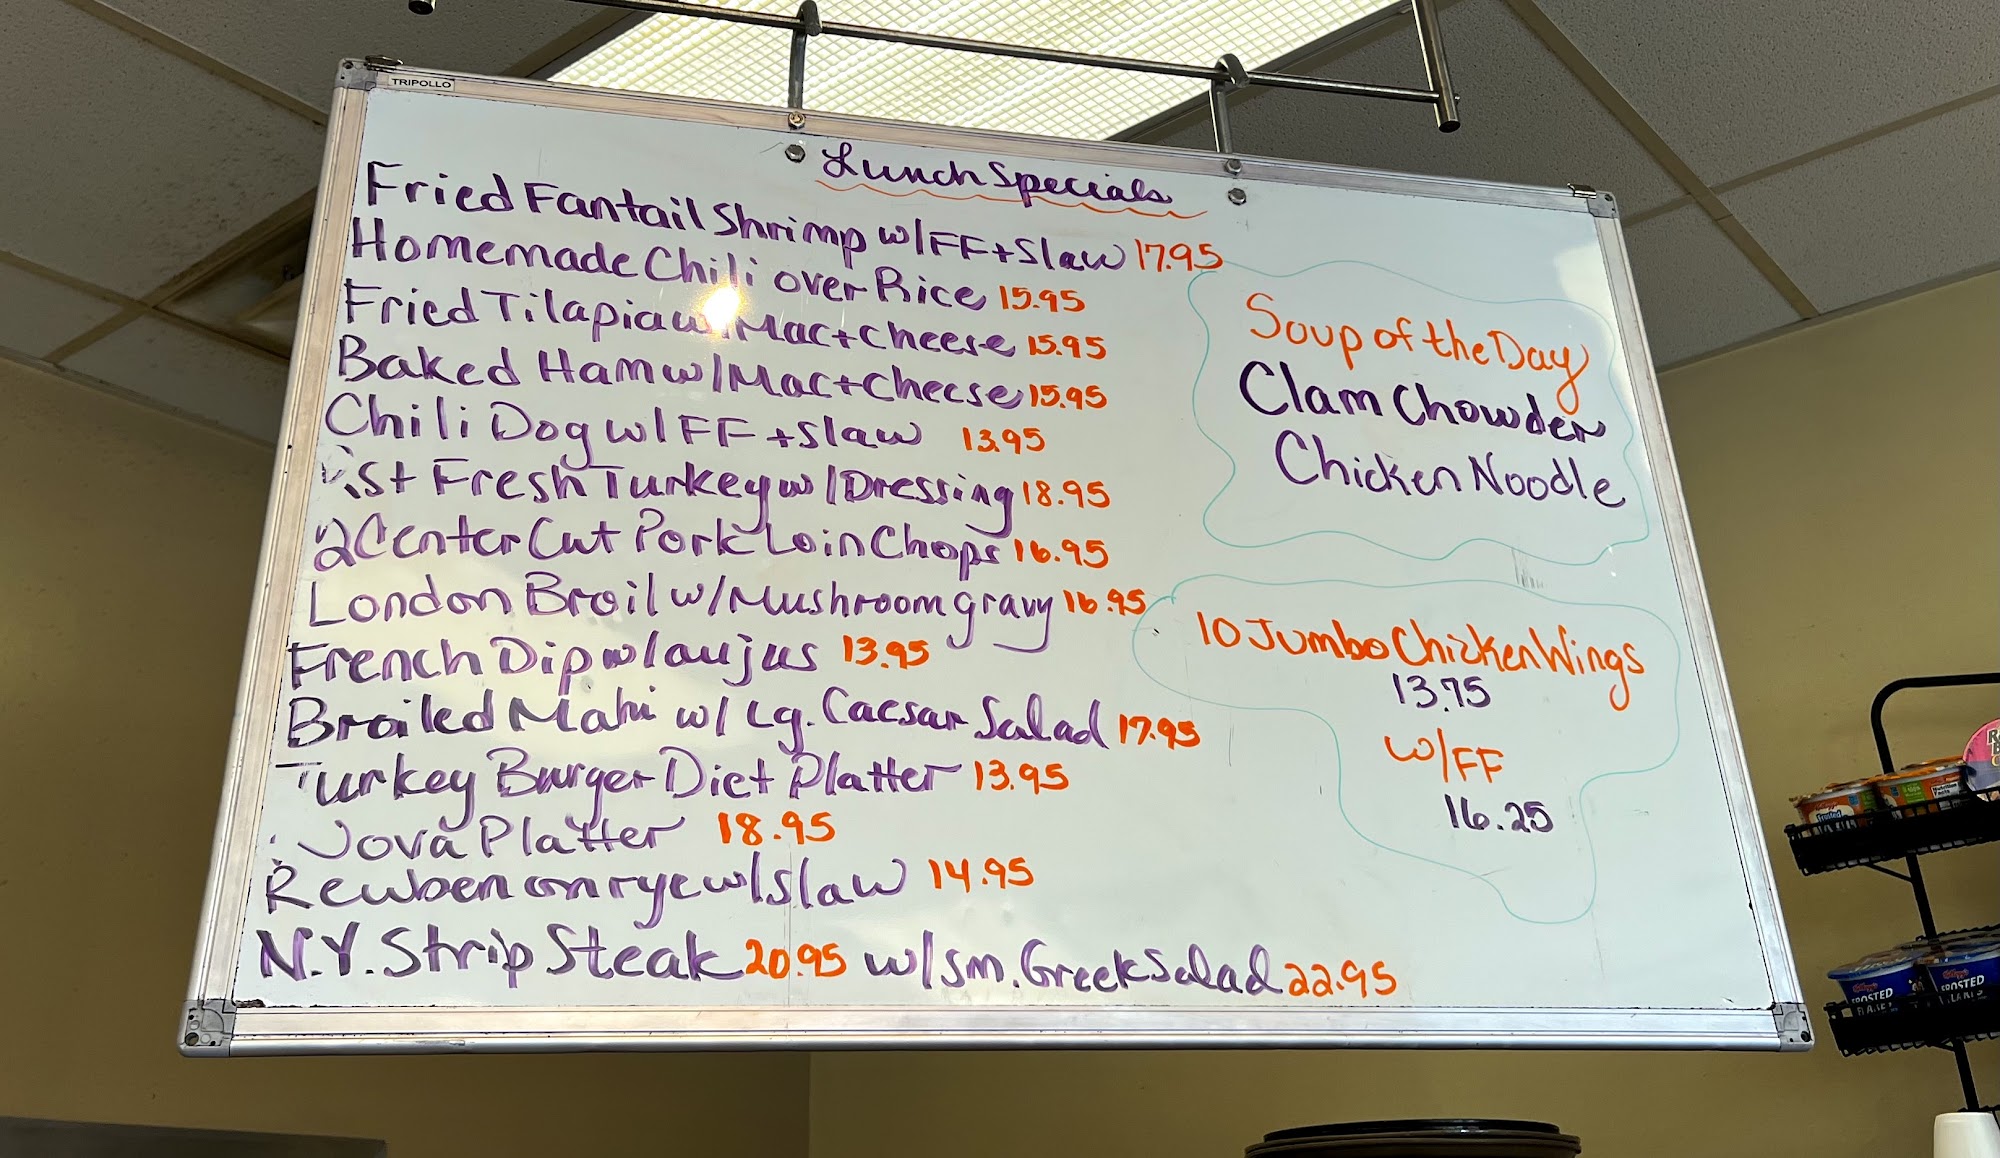 TRIPOLLO
Lunch Specials
Fried Fantail Shrimp w/FF+Slaw 17.95
Homemade Chili over Rice 15.95
Fried Tilapia w/Mac+Cheese 15.95
Baked Ham w/Mac+Cheese 15.95
Chili Dog w/FF+Slaw 13.95
Fresh Turkey w/Dressing 18.95
2 Center Cut Pork Loin Chops 16.95
London Broil w/Mushroom gravy 16.95
French Dip w/au jus 13.95
Broiled Mahi w/ Lg. Caesar Salad 17.95
Turkey Burger Diet Platter 13.95
Nova Platter 18.95
Reuben on rye w/slaw 14.95
N.Y. Strip Steak 20.95 w/sm. Greek Salad 22.95
Soup of the Day
Clam Chowder
Chicken Noodle
10 Jumbo Chicken Wings
13.75
w/FF
16.25
FROSTED
FROSTED